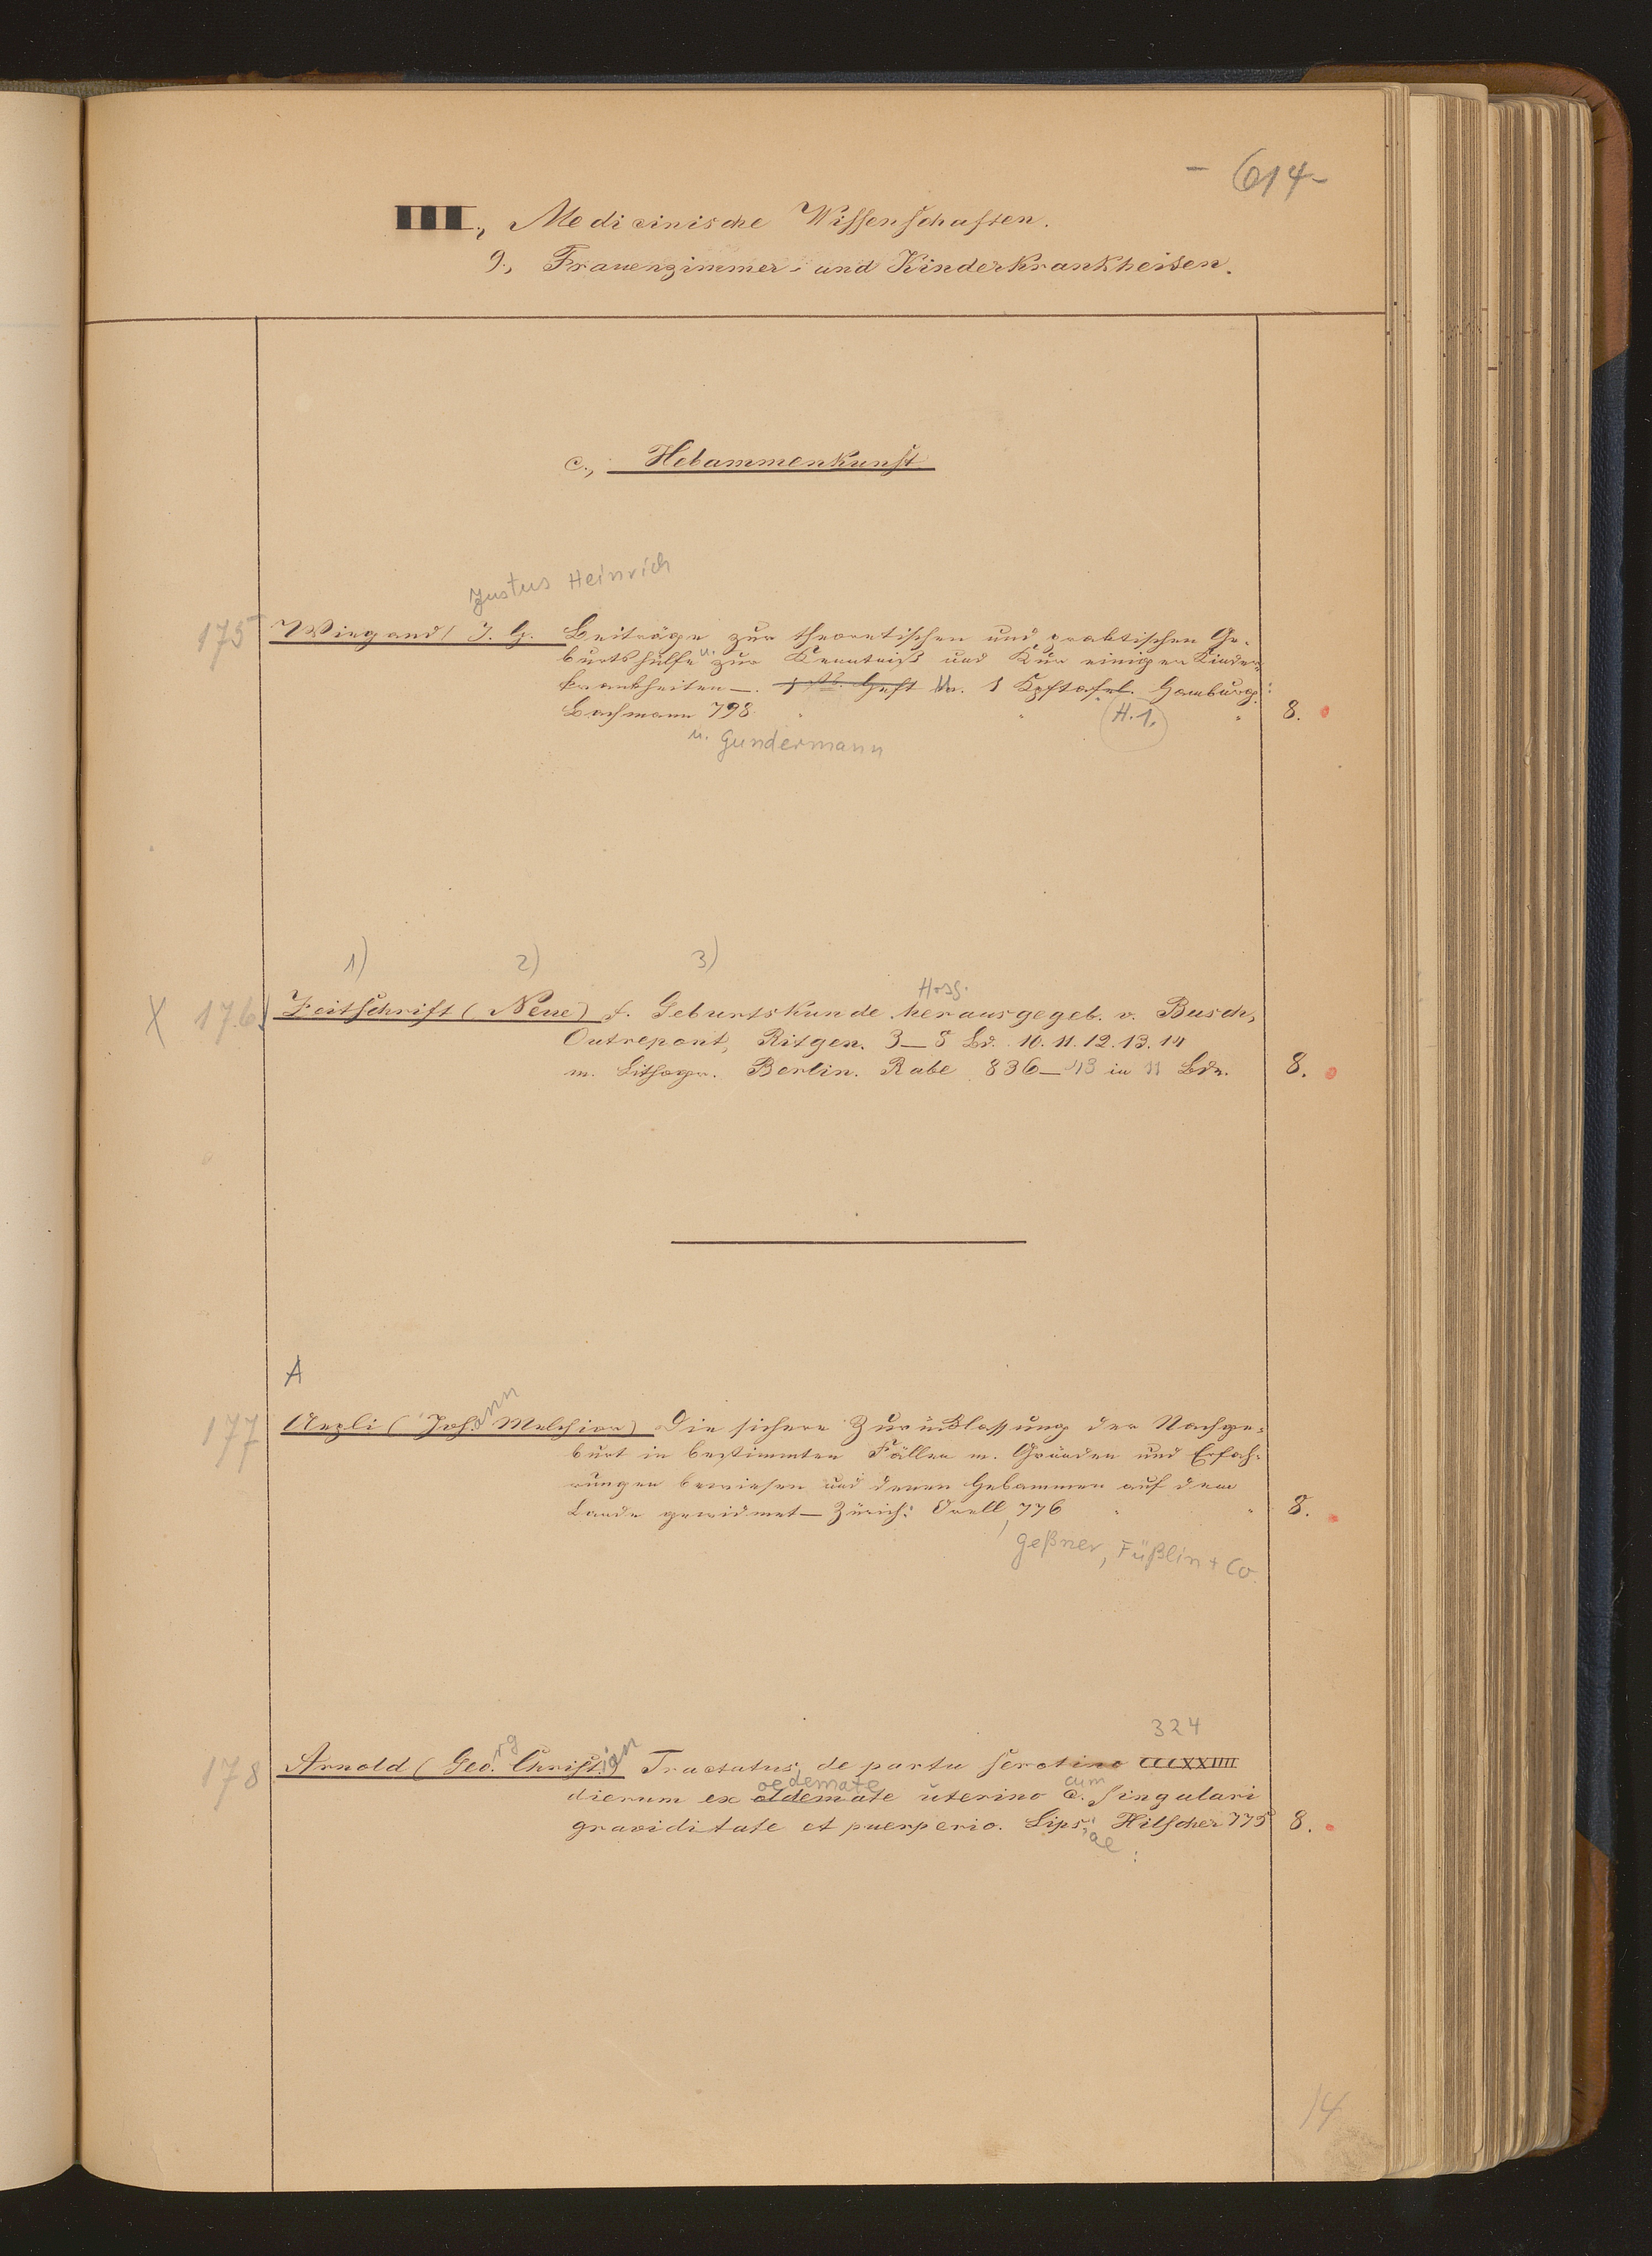 - 614 -
III., Medicinische Wissenschaften.
9., Frauenzimmer- und Kinderkrankheiten.
c., Hebammenkunst
Justus Heinrich
175 Wiegand ( J. H. Beiträge zur theoretischen und praktischen Ge-
burtshülfe u. zur Kenntniß und Kur einiger Kinder-
krankheiten —. 1 Heft m. 1 Kpftafel. Hamburg:
Bachmann 798. H. 1. 8.
u. Gundermann
1) 2) 3)
Hrsg.
X 176 Zeitschrift ( Neue ) f. Geburtskunde herausgegeb. v. Busch,
Outrepont, Ritgen. 3—8 Bd. 10. 11. 12. 13. 14
m. Lithogr. Berlin. Rabe 836—43 in 11 Bdn. 8.
A
177 Aepli ( Johann Melchior) Die sichere Zurücklassung der Nachge-
burt in bestimmten Fällen m. Gründen und Erfah-
rungen bewiesen und denen Hebammen auf dem
Lande gewidmet — Zürich: Orell, 776 8.
Geßner, Füßlin + Co.
324
178 Arnold ( Georg Christian Tractatus, de partu serotino CCCXXIIII
oedemate cum
dierum ex oldemate uterino c. singulari
graviditate et puerperio. Lipsiae: Hilscher 775 8.
14